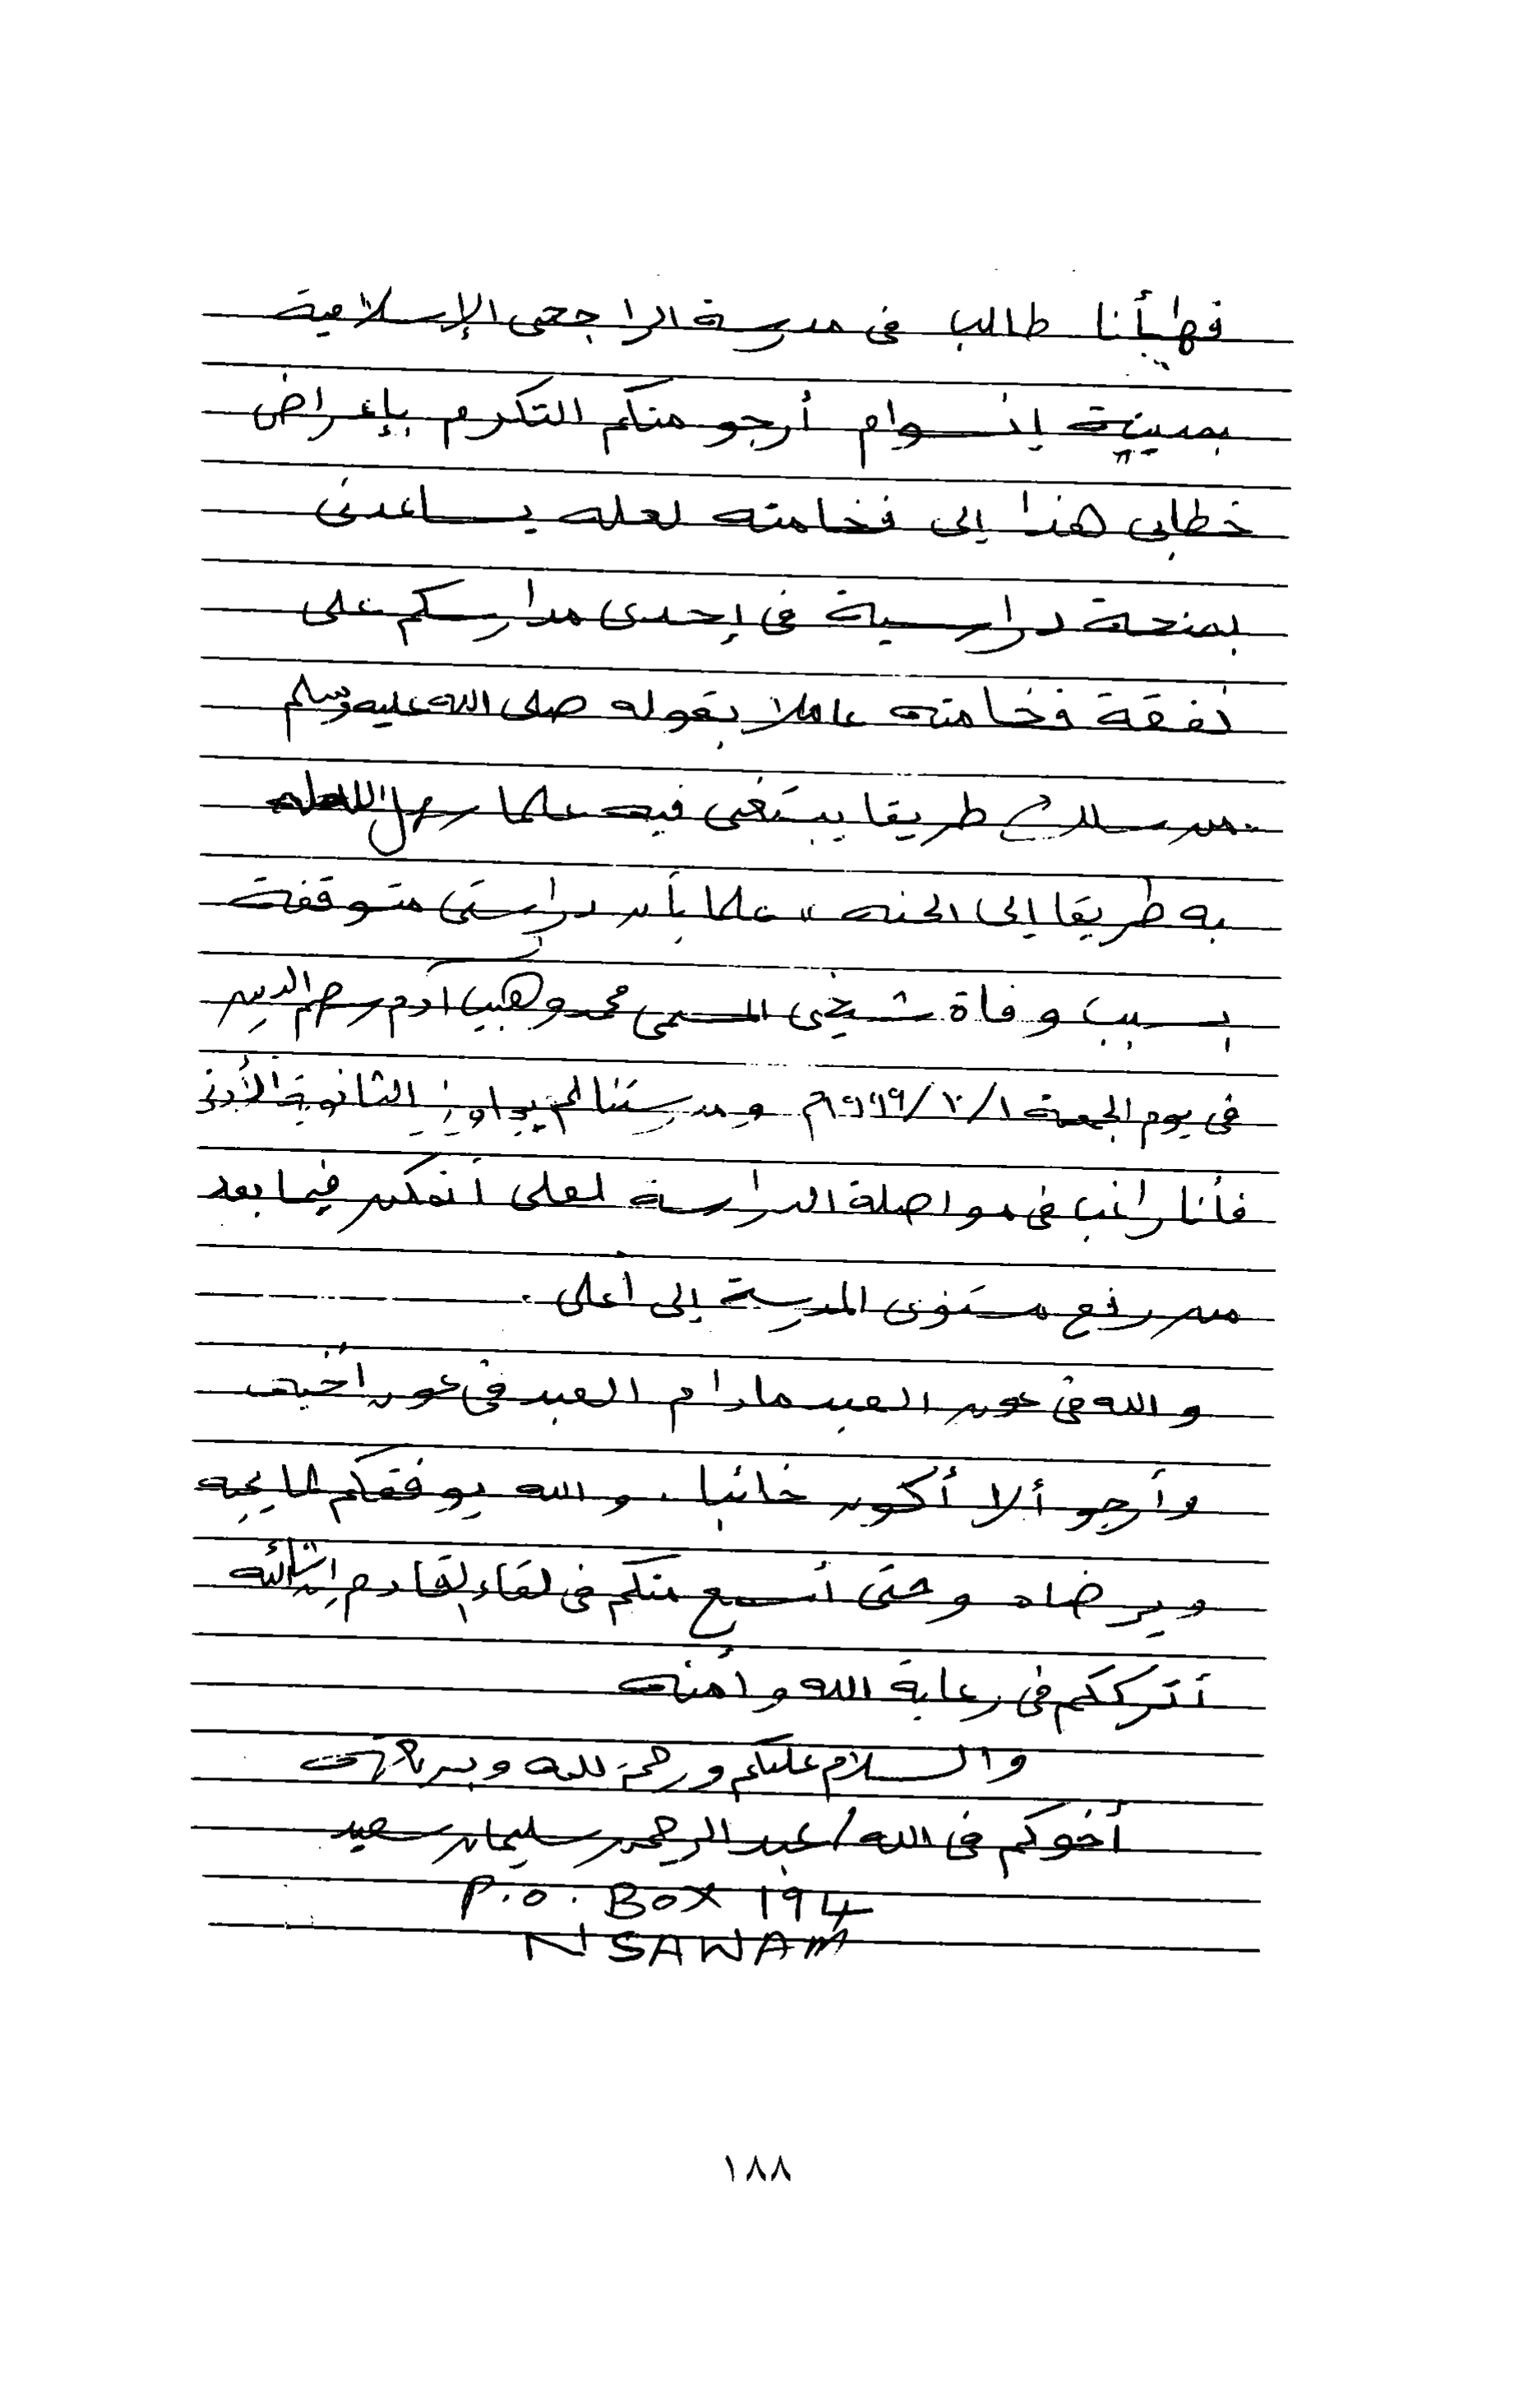 فها أنا طالب فى مدرسة الراجحى الإسلامية
بمدينة إنسوام أرجو منكم التكرم بإعراض
خطابى هذا إلى فخامته لعله يساعدنى
بمنحة دراسية فى إحدى مدارسكم على
نفقة فخامته عاملا بقوله صلى الله عليه وسلم
من سلك طريقا يبتغى فيه علما سهل الله له
به طريقا إلى الجنة " علما بأن دراستى متوقفة
بسبب وفاة شيخى المسمى محمد وهيب آدم
فى يوم الجمعة ومدرستنا لم يجاوز الثانوية الأدنى
فأنا راغب فى مواصلة الدراسة لعلى أتمكن فيما بعد
من رفع مستوى المدرسة إلى أعلى .
والله فى عون العبد مادام العبد فى عون أخيه
وأرجو ألا أكون خائبا . والله يوفقكم لما يحبه
ويرضاه وحتى أسمع منكم فى لقاء القادم إن شاء الله
أترككم فى رعاية الله وأمنه
والسلام عليكم ورحمة الله وبركاته
أخوكم فى الله / عبد الرحمن سليمان سعيد
P.O. BOX 194
NSAWAM
١٨٨